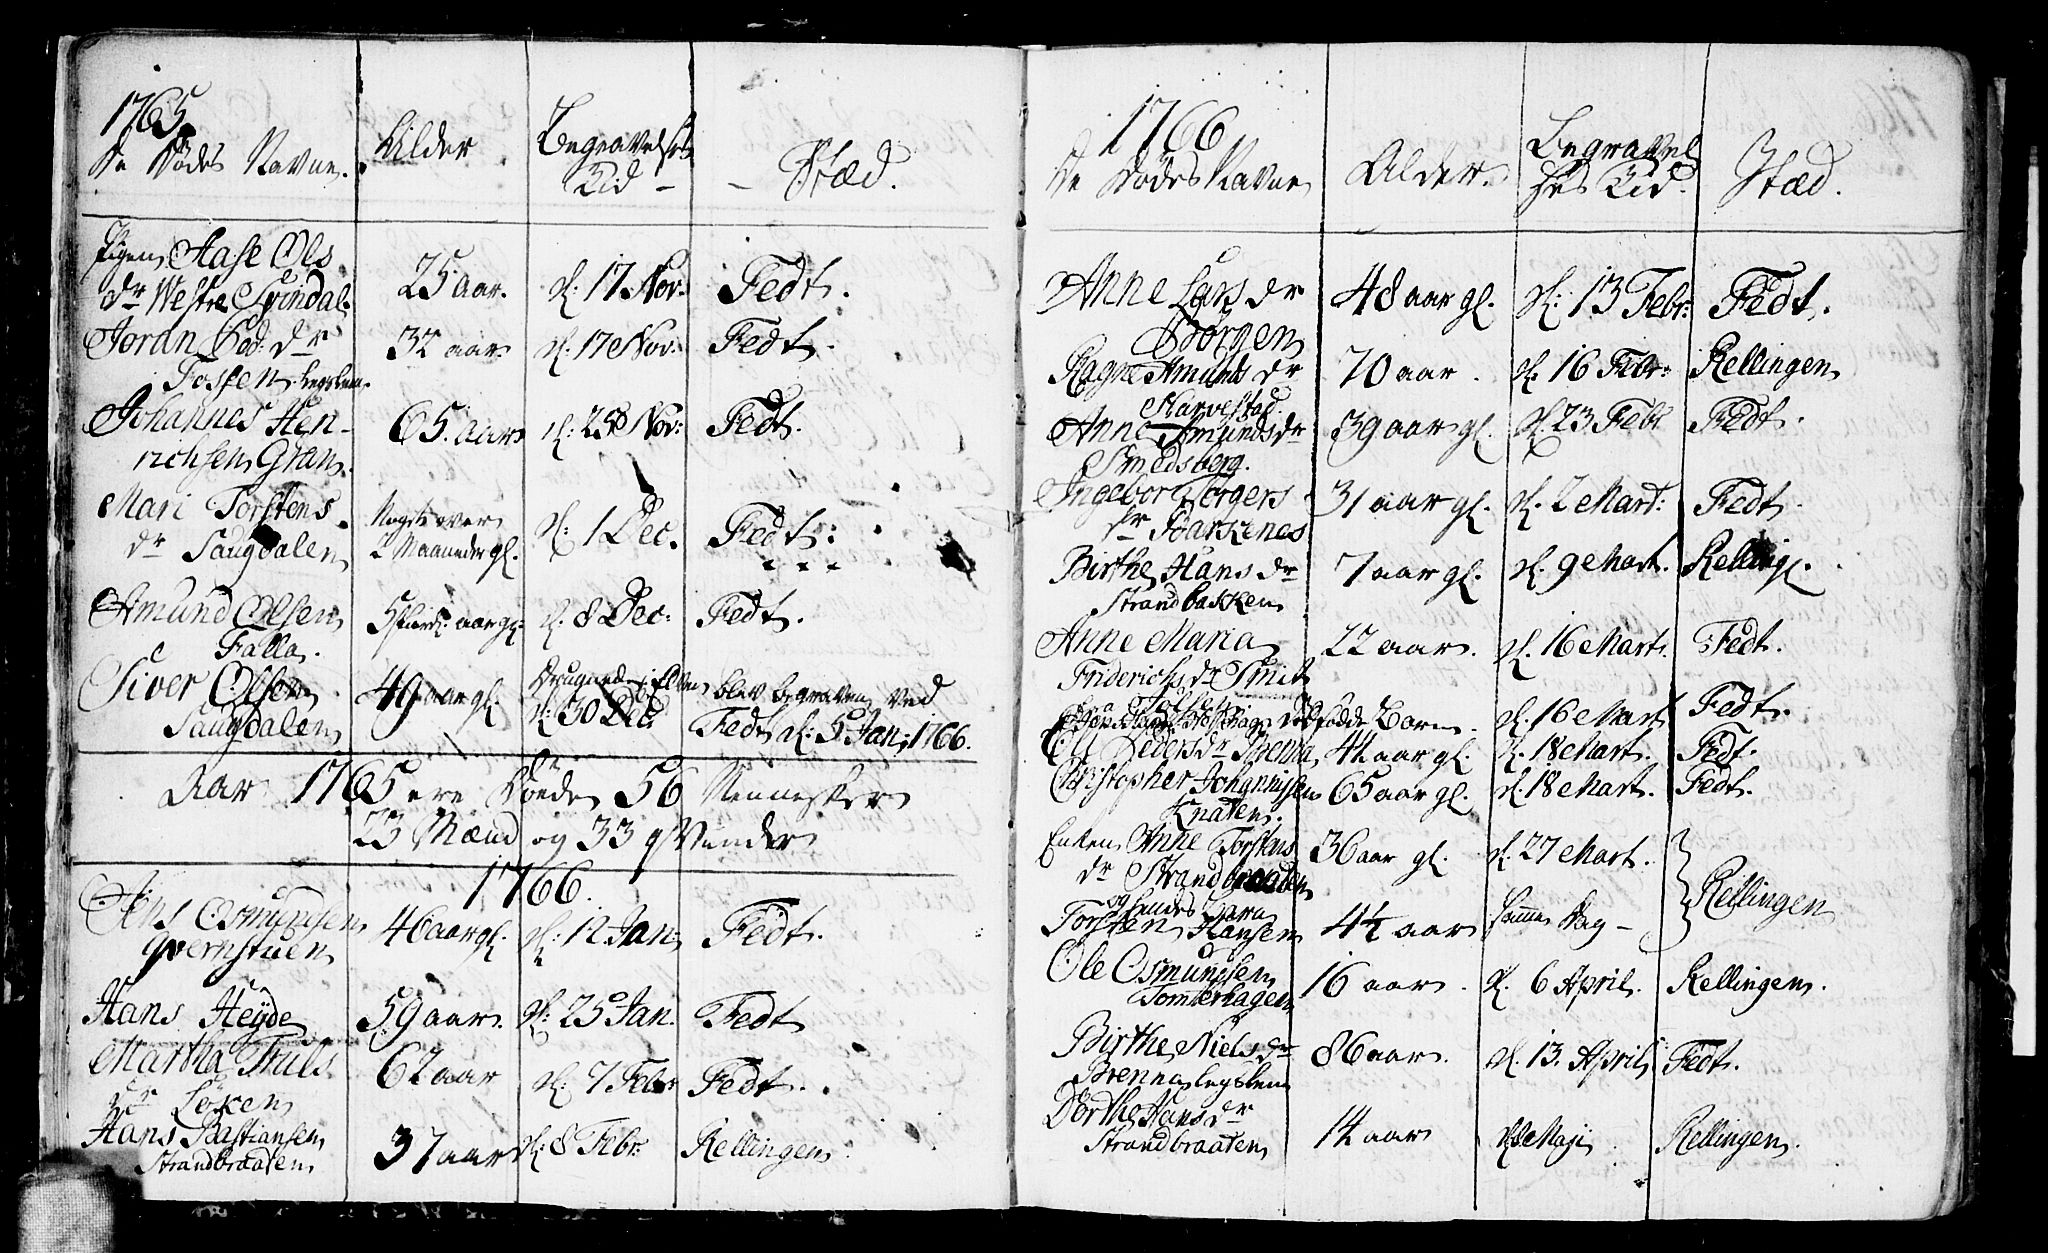 1765.
De Dödes Navne. Alder Begravelses Tid – – Stæd.
Pigen Aase Ols
dr Westre Svindal 25 aar. d: 17 Nov: Fedt.
Joran Ped: dr
Fossen legslem. 32 aar d: 17 Nov: Fedt.
Johannes Hen-
richsen Gran. 65. aar d: 25 Nov: Fedt.
Mari Torstens
dr Saugdalen Noget over
2 Maaneder gl. d: 1 Dec. Fedt:
Amund Olsen
Falla. aar gl: d. 8 Dec: Fedt.
Siver Olsen
Saugdalen 49 aar gl. Drugned i Elven
d: 30 Dec blev begraven ved
Fedt d. 5 Jan: 1766.
Aar 1765 ere Döede 56 Mennesker
23 Mænd og 33 qvinder
1766.
Jens Osmundsen
qvernstuen 46 aar gl. d: 12 Jan: Fedt.
Hans Heyde 59 aar. d: 25 Jan. Fedt
Martha Truls
dr Löken 62 aar d: 7 Febr Fedt.
Hans Bastiansen
Strandbraaten 37 aar d: 8 Febr: Rellingen
1766
De Dödes Navne Alder. Begravel
ses Tid. Stæd.
Anne Lars dr
Börgen 48 aar gl. d: 13 Febr: Fedt.
Ragne Amunds dr
Skarvestad. 70 aar. d. 16 Febr: Rellingen
Anne Amunds dr
Smedsberg. 39 aar gl. d. 23 Febr Fedt.
Ingebor Törgers
dr Barkenes 31 aar gl. d. 2 Mart: Fedt.
Birthe Hans dr
Strandbakken 7 aar gl. d. 9 Mart. Relling.
Anne Maria
Friderichs dr Smit 22 aar. d. 16 Mart. Fedt.
dödfödde Barn. d. 16 Mart Fedt.
Peders dr 42 aar gl. d. 18 Mart. Fedt.
Christopher Johannisen
Knaten. 65 aar gl. d. 18 Mart. Fedt.
Enken Anne Torstens
dr Strandbraaten 36 aar gl. d. 27 Mart.
og hendes Barn
Torsten Hansen 4½ aar Samme Dag – Rellingen
Ole Osmundsen
Tomterhagen 16 aar. d. 6 April. Rellingen.
Birthe Niels dr
Brenna legslem 86 aar. d. 13. April Fedt.
Dorthe Hans dr
Strandbraaten 14 aar Maji Rellingen.